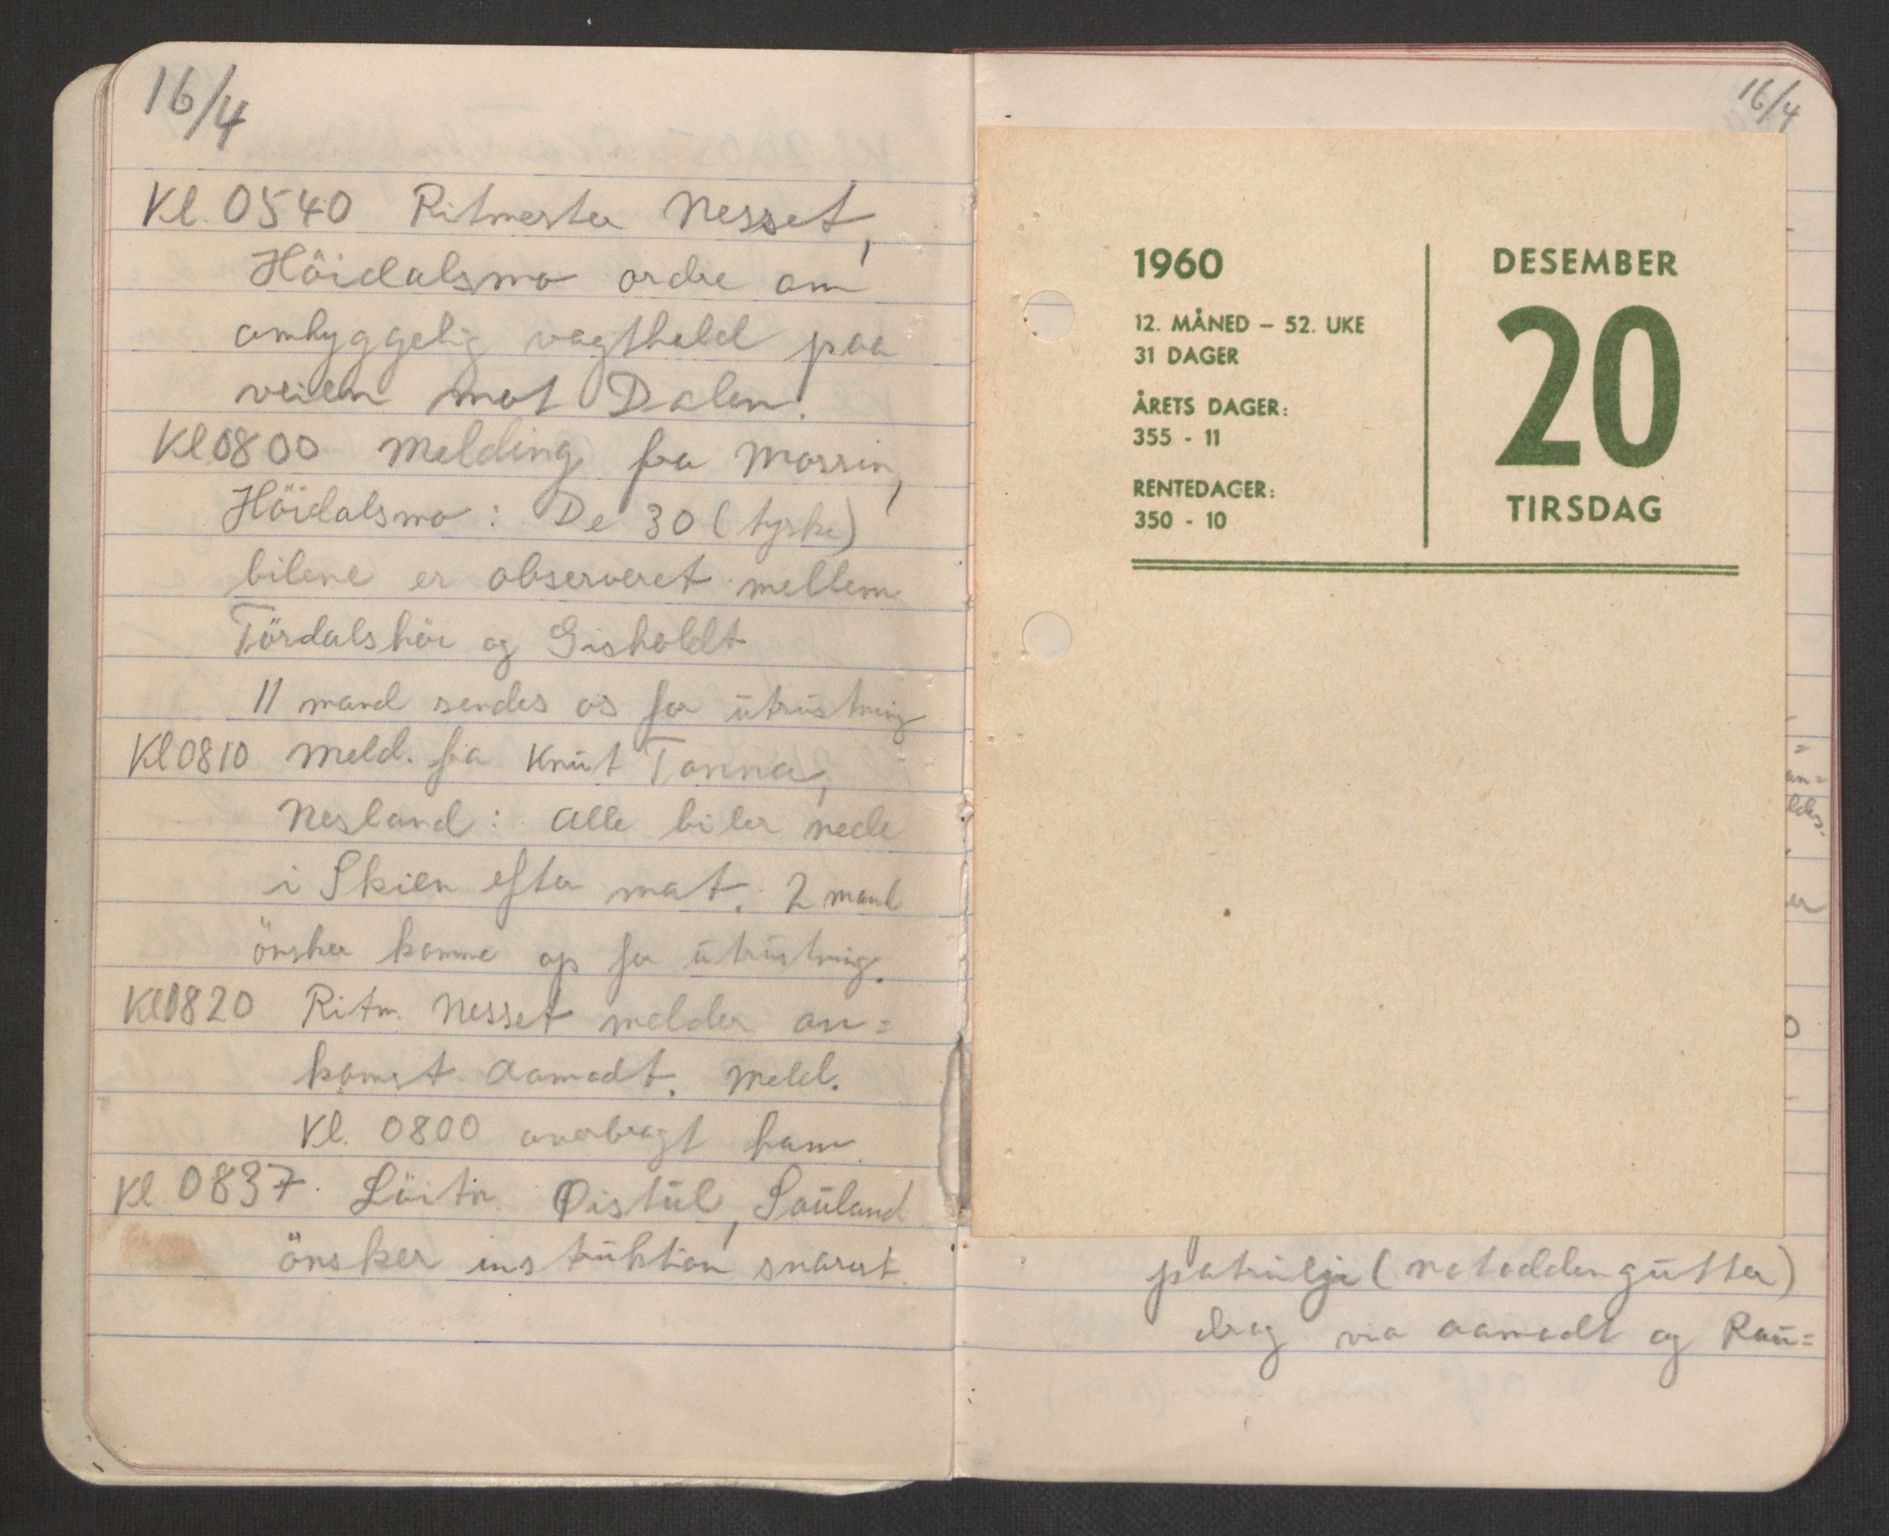 16/4
Kl. 0540 Ritmester Nesset,
Höidalsmo ordre om
omhyggelig vagthold paa
veien mot Dalen.
Kl 0800 Melding fra
Höidalsmo: De 30 (tyske)
bilene er observeret mellem
Tördalshöi og Gisholdt
11 mand sendes os for utrustning
Kl 0810 Meld. fra Knut Tonna,
Nesland: Alle biler nede
i Skien efter mat. 2 mand
önsker komme op for utrustning.
Kl 0820 Ritm. Nesset melder an=
komst Aamodt. Meld.
Kl. 0800 overbragt ham.
Kl 0837. Löitn. Øistul, Sauland
önsker instruktion snarest.
16/4
1960
12. MÅNED – 52. UKE
31 DAGER
ÅRETS DAGER:
355 - 11
RENTEDAGER:
350 - 10
DESEMBER
20
TIRSDAG
patrulje (notoddengutter)
drog via Aamodt og Rau=